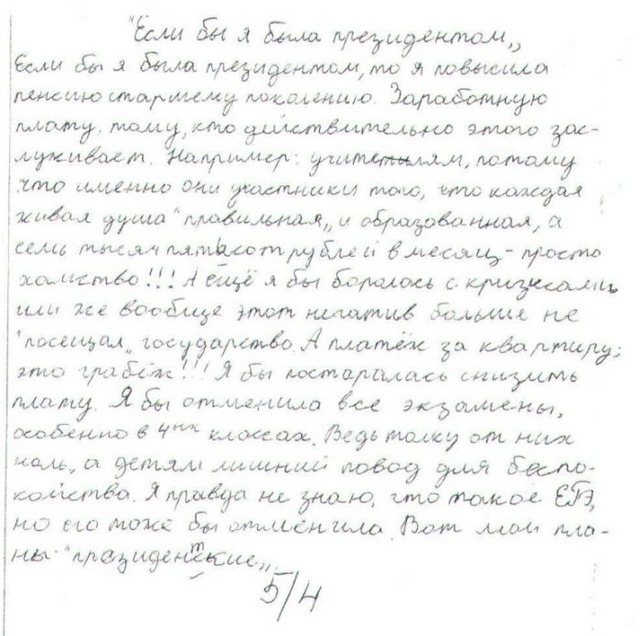 "Если бы я была президентом„
Если бы я была президентом, то я повысила
пенсию старшему поколению. Заработную
плату, тому, кто действительно этого зас-
луживает. Например: учителям, потому
что именно они участники того, что каждая
живая душа "правильная„ и образованная, а
семь тысяч пятьсот рублей в месяц - просто
хамство!!! А ещё я бы боролась с кризисами
или же вообще этот негатив больше не
"посещал„ государство. А платёж за квартиру;
это грабёж!!! Я бы постаралась снизить
плату. Я бы отменила все экзамены,
особенно в 4ых классах. Ведь толку от них
ноль, а детям лишний повод для беспо-
койства. Я правда не знаю, что такое ЕГЭ,
но его тоже бы отменила. Вот мои пла-
ны "президентские„.
5/4